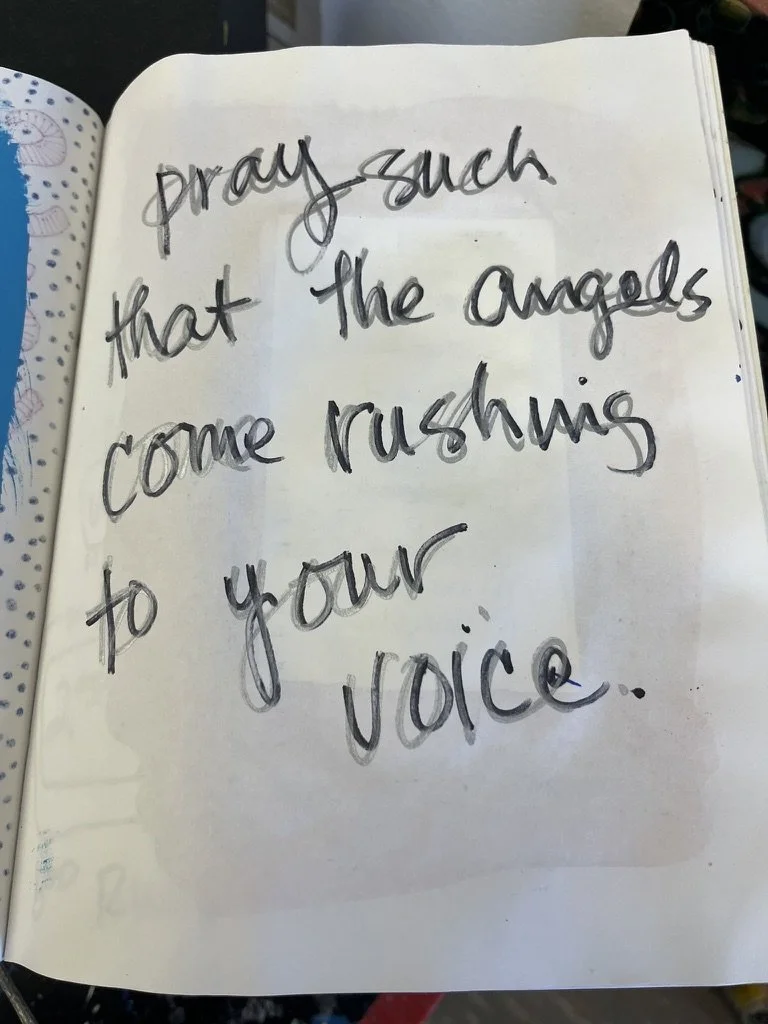 pray such
that the angels
come rushing
to your
voice.